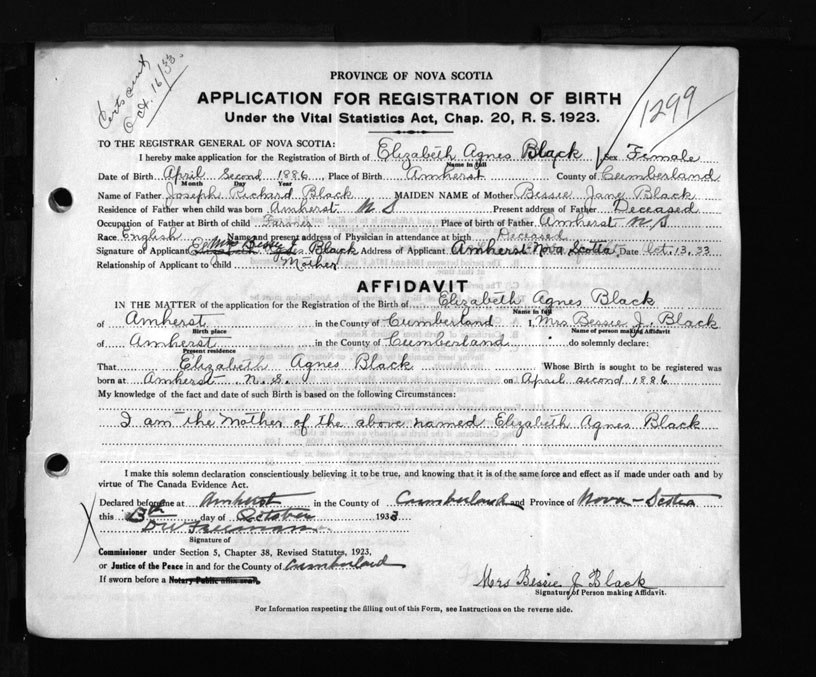 Certs sent
Oct. 16/33.
1299
PROVINCE OF NOVA SCOTIA
APPLICATION FOR REGISTRATION OF BIRTH
Under the Vital Statistics Act, Chap. 20, R. S. 1923.
TO THE REGISTRAR GENERAL OF NOVA SCOTIA:
I hereby make application for the Registration of Birth of Elizabeth Agnes Black Sex Female
Name in full
Date of Birth April Second 1886 Place of Birth Amherst County of Cumberland
Month Day Year
Name of Father Joseph Richard Black MAIDEN NAME of Mother Bessie Jane Black
Residence of Father when child was born Amherst N S Present address of Father Deceased
Occupation of Father at Birth of child Farmer Place of Birth of Father Amherst N. S
Race English Name and present address of Physician in attendance at birth Deceased
Signature of Applicant Mrs Bessie J Black Address of Applicant Amherst Nova Scotia Date Oct. 13, 33
Relationship of Applicant to Child Mother
AFFIDAVIT
IN THE MATTER of the application for the Registration of the Birth of Elizabeth Agnes Black
Name in full
of Amherst in the County of Cumberland I, Mrs Bessie J. Black
Birth place Name of person making Affidavit
of Amherst in the County of Cumberland do solemnly declare:
Present residence
That Elizabeth Agnes Black Whose Birth is sought to be registered was
born at Amherst N. S. on April second 1886
My knowledge of the fact and date of such Birth is based on the following Circumstances:
I am the Mother of the above named Elizabeth Agnes Black
I make this solemn declaration conscientiously believing it to be true, and knowing that it is of the same force and effect as if made under oath and by
virtue of The Canada Evidence Act.
Declared before me at Amherst in the County of Cumberland and Province of Nova-Scotia
this 13th day of October 1933
Signature of
Commissioner under Section 5, Chapter 38, Revised Statutes, 1923.
or Justice of the Peace in and for the County of Cumberland
If sworn before a Notary Public affix seal.
Mrs Bessie J Black
Signature of Person making Affidavit.
For Information respecting the filling out of this Form, see Instructions on the reverse side.